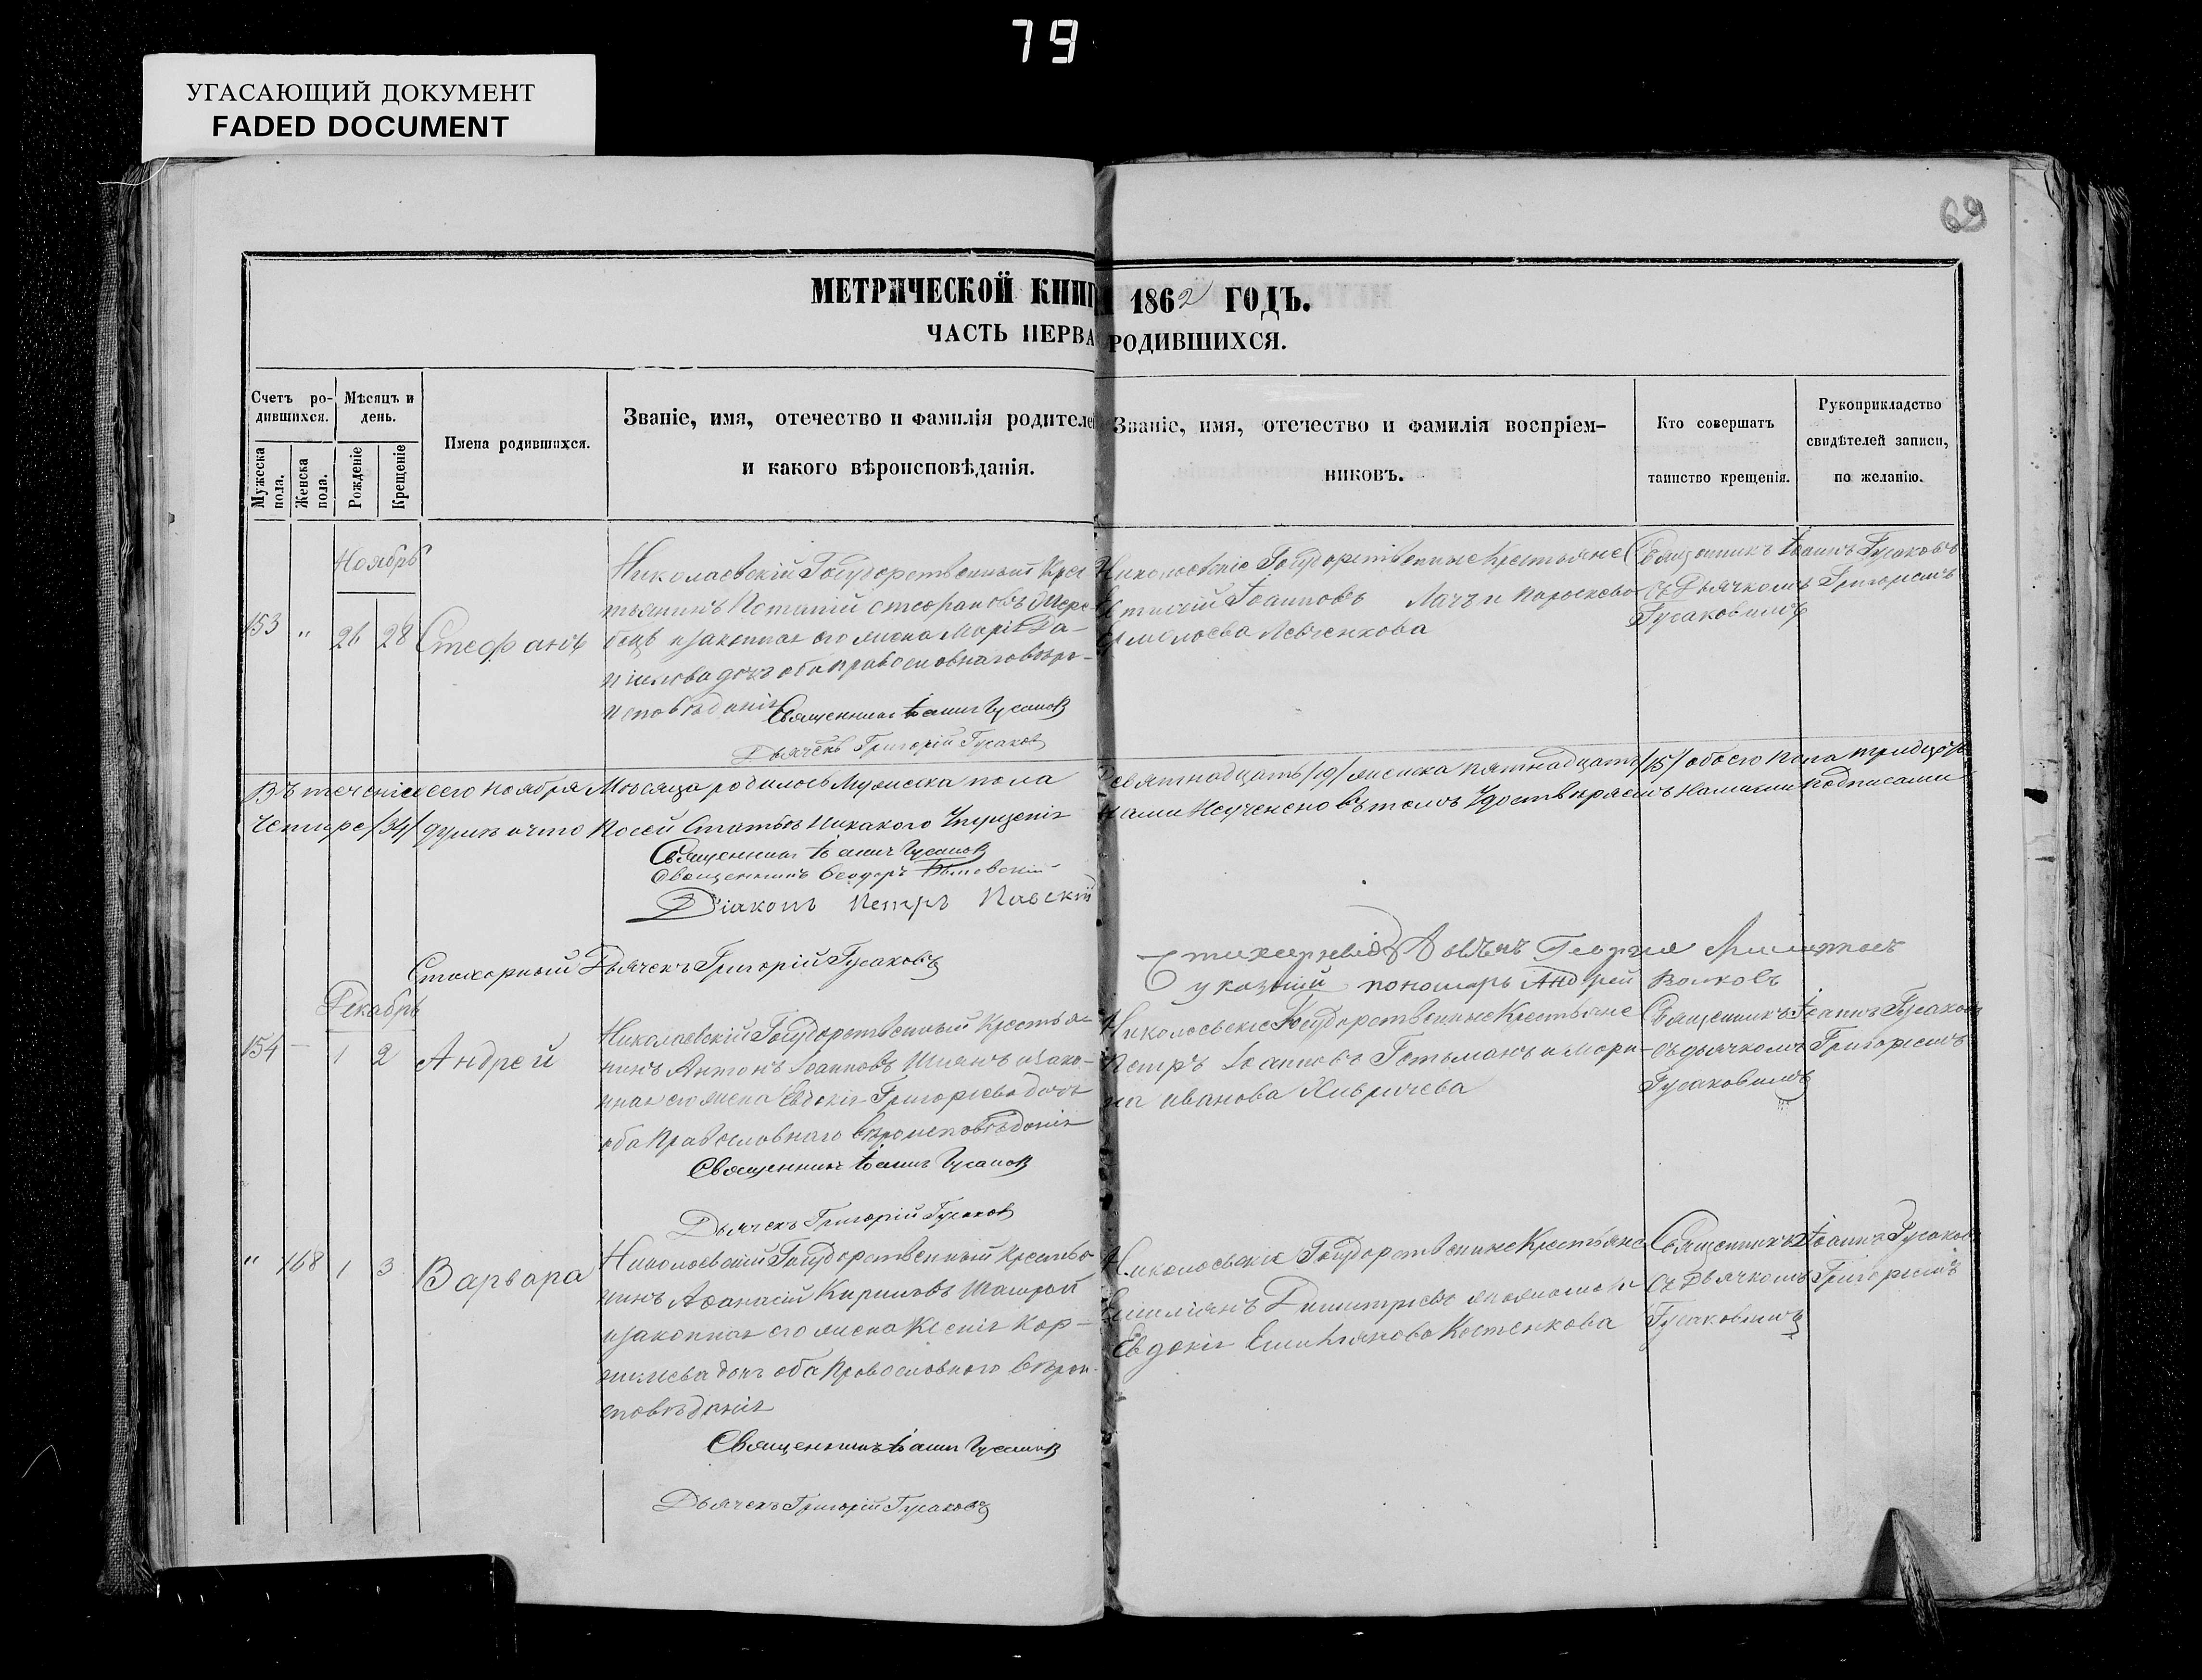 79
УГАСАЮЩИЙ ДОКУМЕНТ
FADED DOCUMENT
69
МЕТРИЧЕСКОЙ КНИГ 1862 ГОДЪ.
ЧАСТЬ ПЕРВА РОДИВШИХСЯ.
Счетъ ро-
дившихся.
Мужеска пола.
Женска пола.
Мѣсяцъ и день.
Рожденіе
Крещеніе
Имена родившихся.
Званіе, имя, отечество и фамилія родителе
и какого вѣроисповѣданія.
Званіе, имя, отечество и фамилія воспріем-
никовъ.
Кто совершатъ
таинство крещенія.
Рукоприкладство
свидѣтелей записи,
по желанію.
Ноябрь
153 " 26 28 Стефанъ
Николаевскій Государственный Крес
тьянинъ Потапій Стефановъ
и законная его жена Марія Да-
нилова дочь оба православнаго вѣро-
исповѣданія
Священникъ Іоаннъ Гусаковъ
Дьячекъ Григорій Гусаковъ
Николаевскіе Государственные Крестьяне
Іоанновъ и Параскева
Левченкова
Священникъ Іоаннъ Гусаковъ
съ Дьячкомъ Григоріемъ
Гусаковымъ
Въ теченіе сего Ноября Мѣсяца родилось Мужеска пола девятнадцать /19/ женска пятнадцать /15/ обоего пола тридцать
Четыре /34/ душъ и что по сей Статьѣ никакого Упущенія нами не учинено въ томъ Удостовѣряемъ нашими подписами
Священникъ Іоаннъ Гусаковъ
Священникъ Феодоръ
Діаконъ Петръ
Стихарный Дьячекъ Григорій Гусаковъ
Стихарный Георгій
указный пономарь Андрей Волковъ
Декабрь
154 - 1 2 Андрей
Николаевскій Государственный Крестья
нинъ Антонъ Іоанновъ Шиянъ и Зако-
нная его жена Евдокія Григорьева дочь
оба Православнаго вѣроисповѣданія
Священникъ Іоаннъ Гусаковъ
Дьячекъ Григорій Гусаковъ
Николаевскіе Государственные Крестьяне
Петръ Іоанновъ Гетьманъ и Мари-
на Иванова
Священникъ Іоаннъ Гусаковъ
съ дьячкомъ Григоріемъ
Гусаковымъ
" 168 1 3 Варвара
Николаевскій Государственный Крестья
нинъ Афанасій Кириловъ
и законная его жена Ксенія Кор-
нилиева дочь оба Православнаго вѣрои-
сповѣданія
Священникъ Іоаннъ Гусаковъ
Дьячекъ Григорій Гусаковъ
Николаевскіе Государственные Крестьяне
Емиліянъ Димитріевъ и
Евдокія Емиліянова Костенкова
Священникъ Іоаннъ Гусаковъ
съ Дьячкомъ Григоріемъ
Гусаковымъ